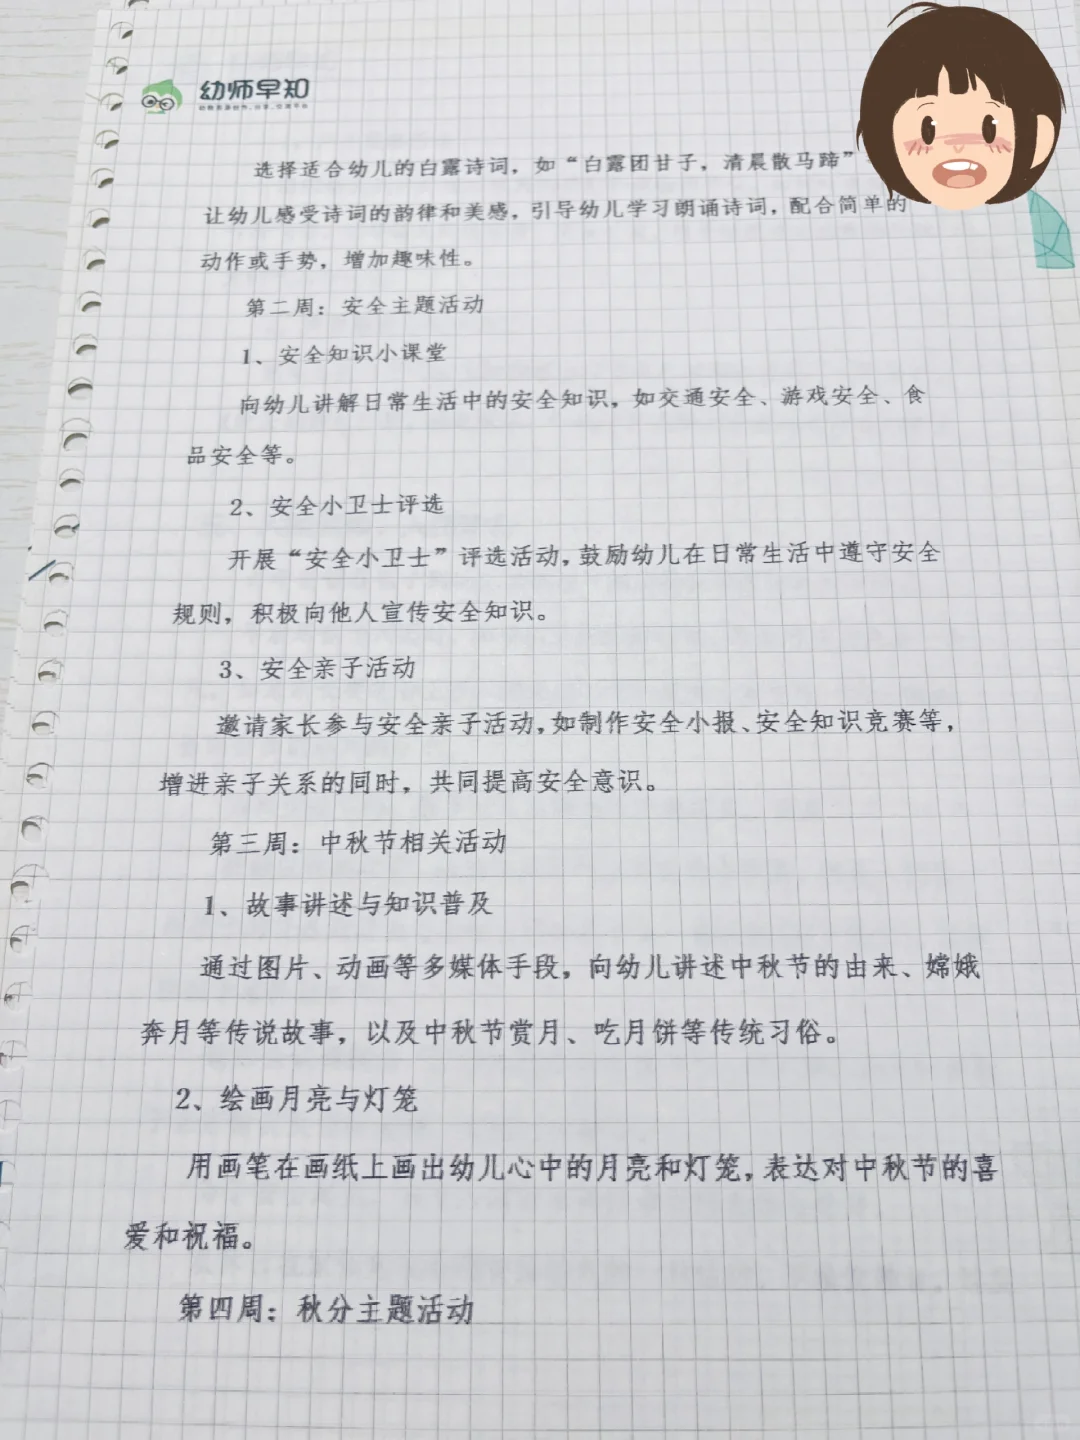 幼师早知
选择适合幼儿的白露诗词，如“白露团甘子，清晨散马蹄”
让幼儿感受诗词的韵律和美感，引导幼儿学习朗诵诗词，配合简单的
动作或手势，增加趣味性。
第二周：安全主题活动
1、安全知识小课堂
向幼儿讲解日常生活中的安全知识，如交通安全、游戏安全、食
品安全等。
2、安全小卫士评选
开展“安全小卫士”评选活动，鼓励幼儿在日常生活中遵守安全
规则，积极向他人宣传安全知识。
3、安全亲子活动
邀请家长参与安全亲子活动，如制作安全小报、安全知识竞赛等，
增进亲子关系的同时，共同提高安全意识。
第三周：中秋节相关活动
1、故事讲述与知识普及
通过图片、动画等多媒体手段，向幼儿讲述中秋节的由来、嫦娥
奔月等传说故事，以及中秋节赏月、吃月饼等传统习俗。
2、绘画月亮与灯笼
用画笔在画纸上画出幼儿心中的月亮和灯笼，表达对中秋节的喜
爱和祝福。
第四周：秋分主题活动